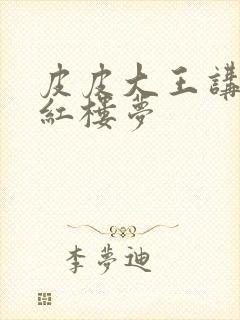 皮皮大王講
紅樓夢
李夢迪